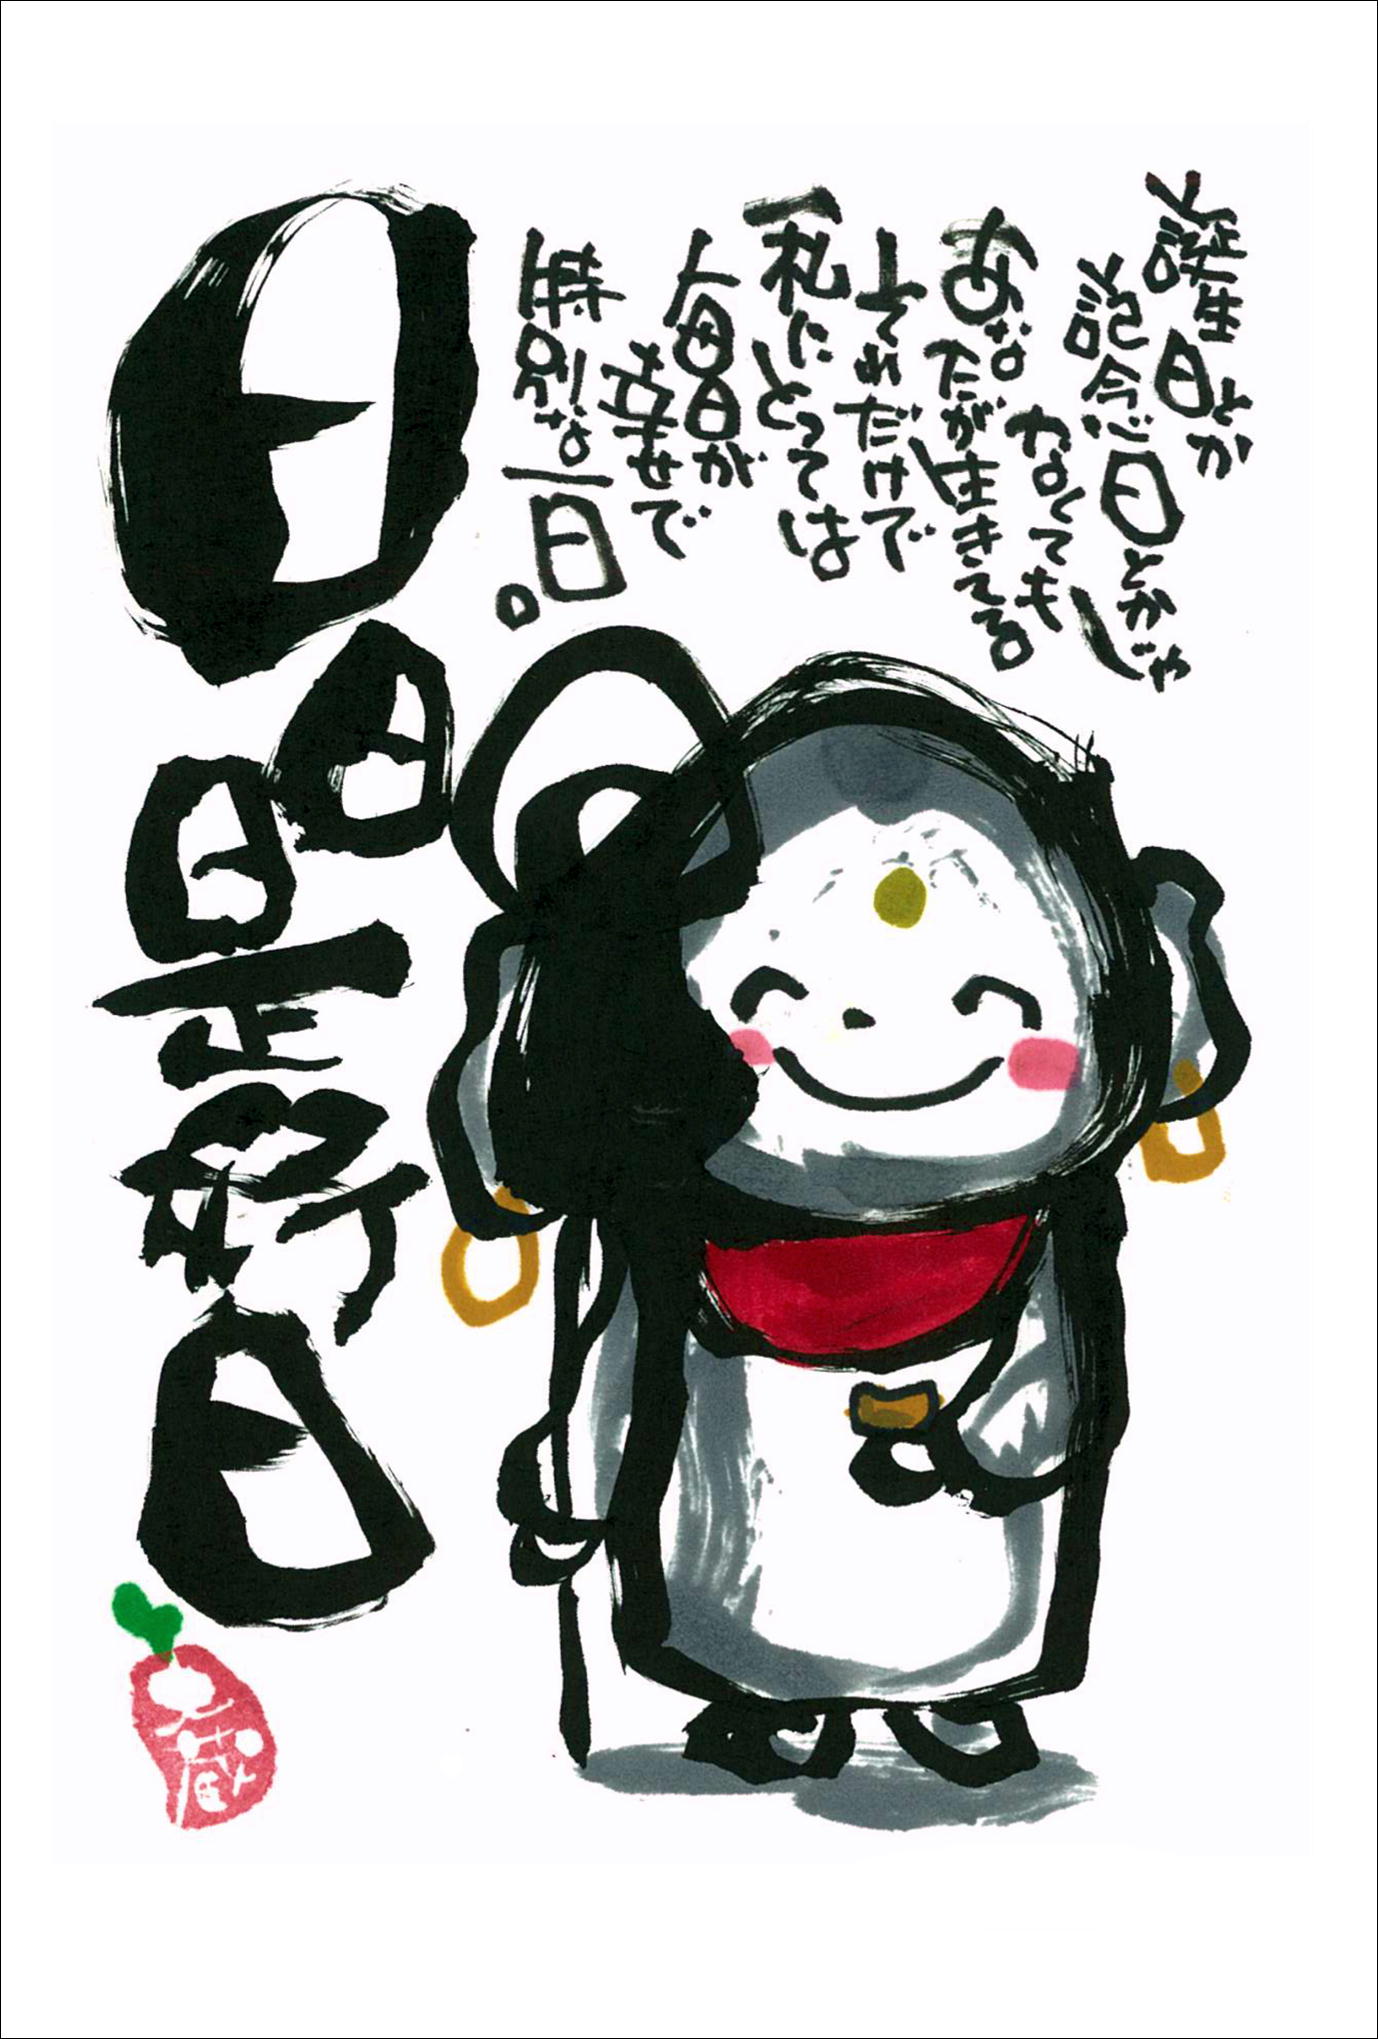 誕生日とか
記念日とかじゃ
なくても
あなたが生きてる
してれだけで
私にとっては
毎日が
幸せで
特別な一日。
日日是好日
蔵